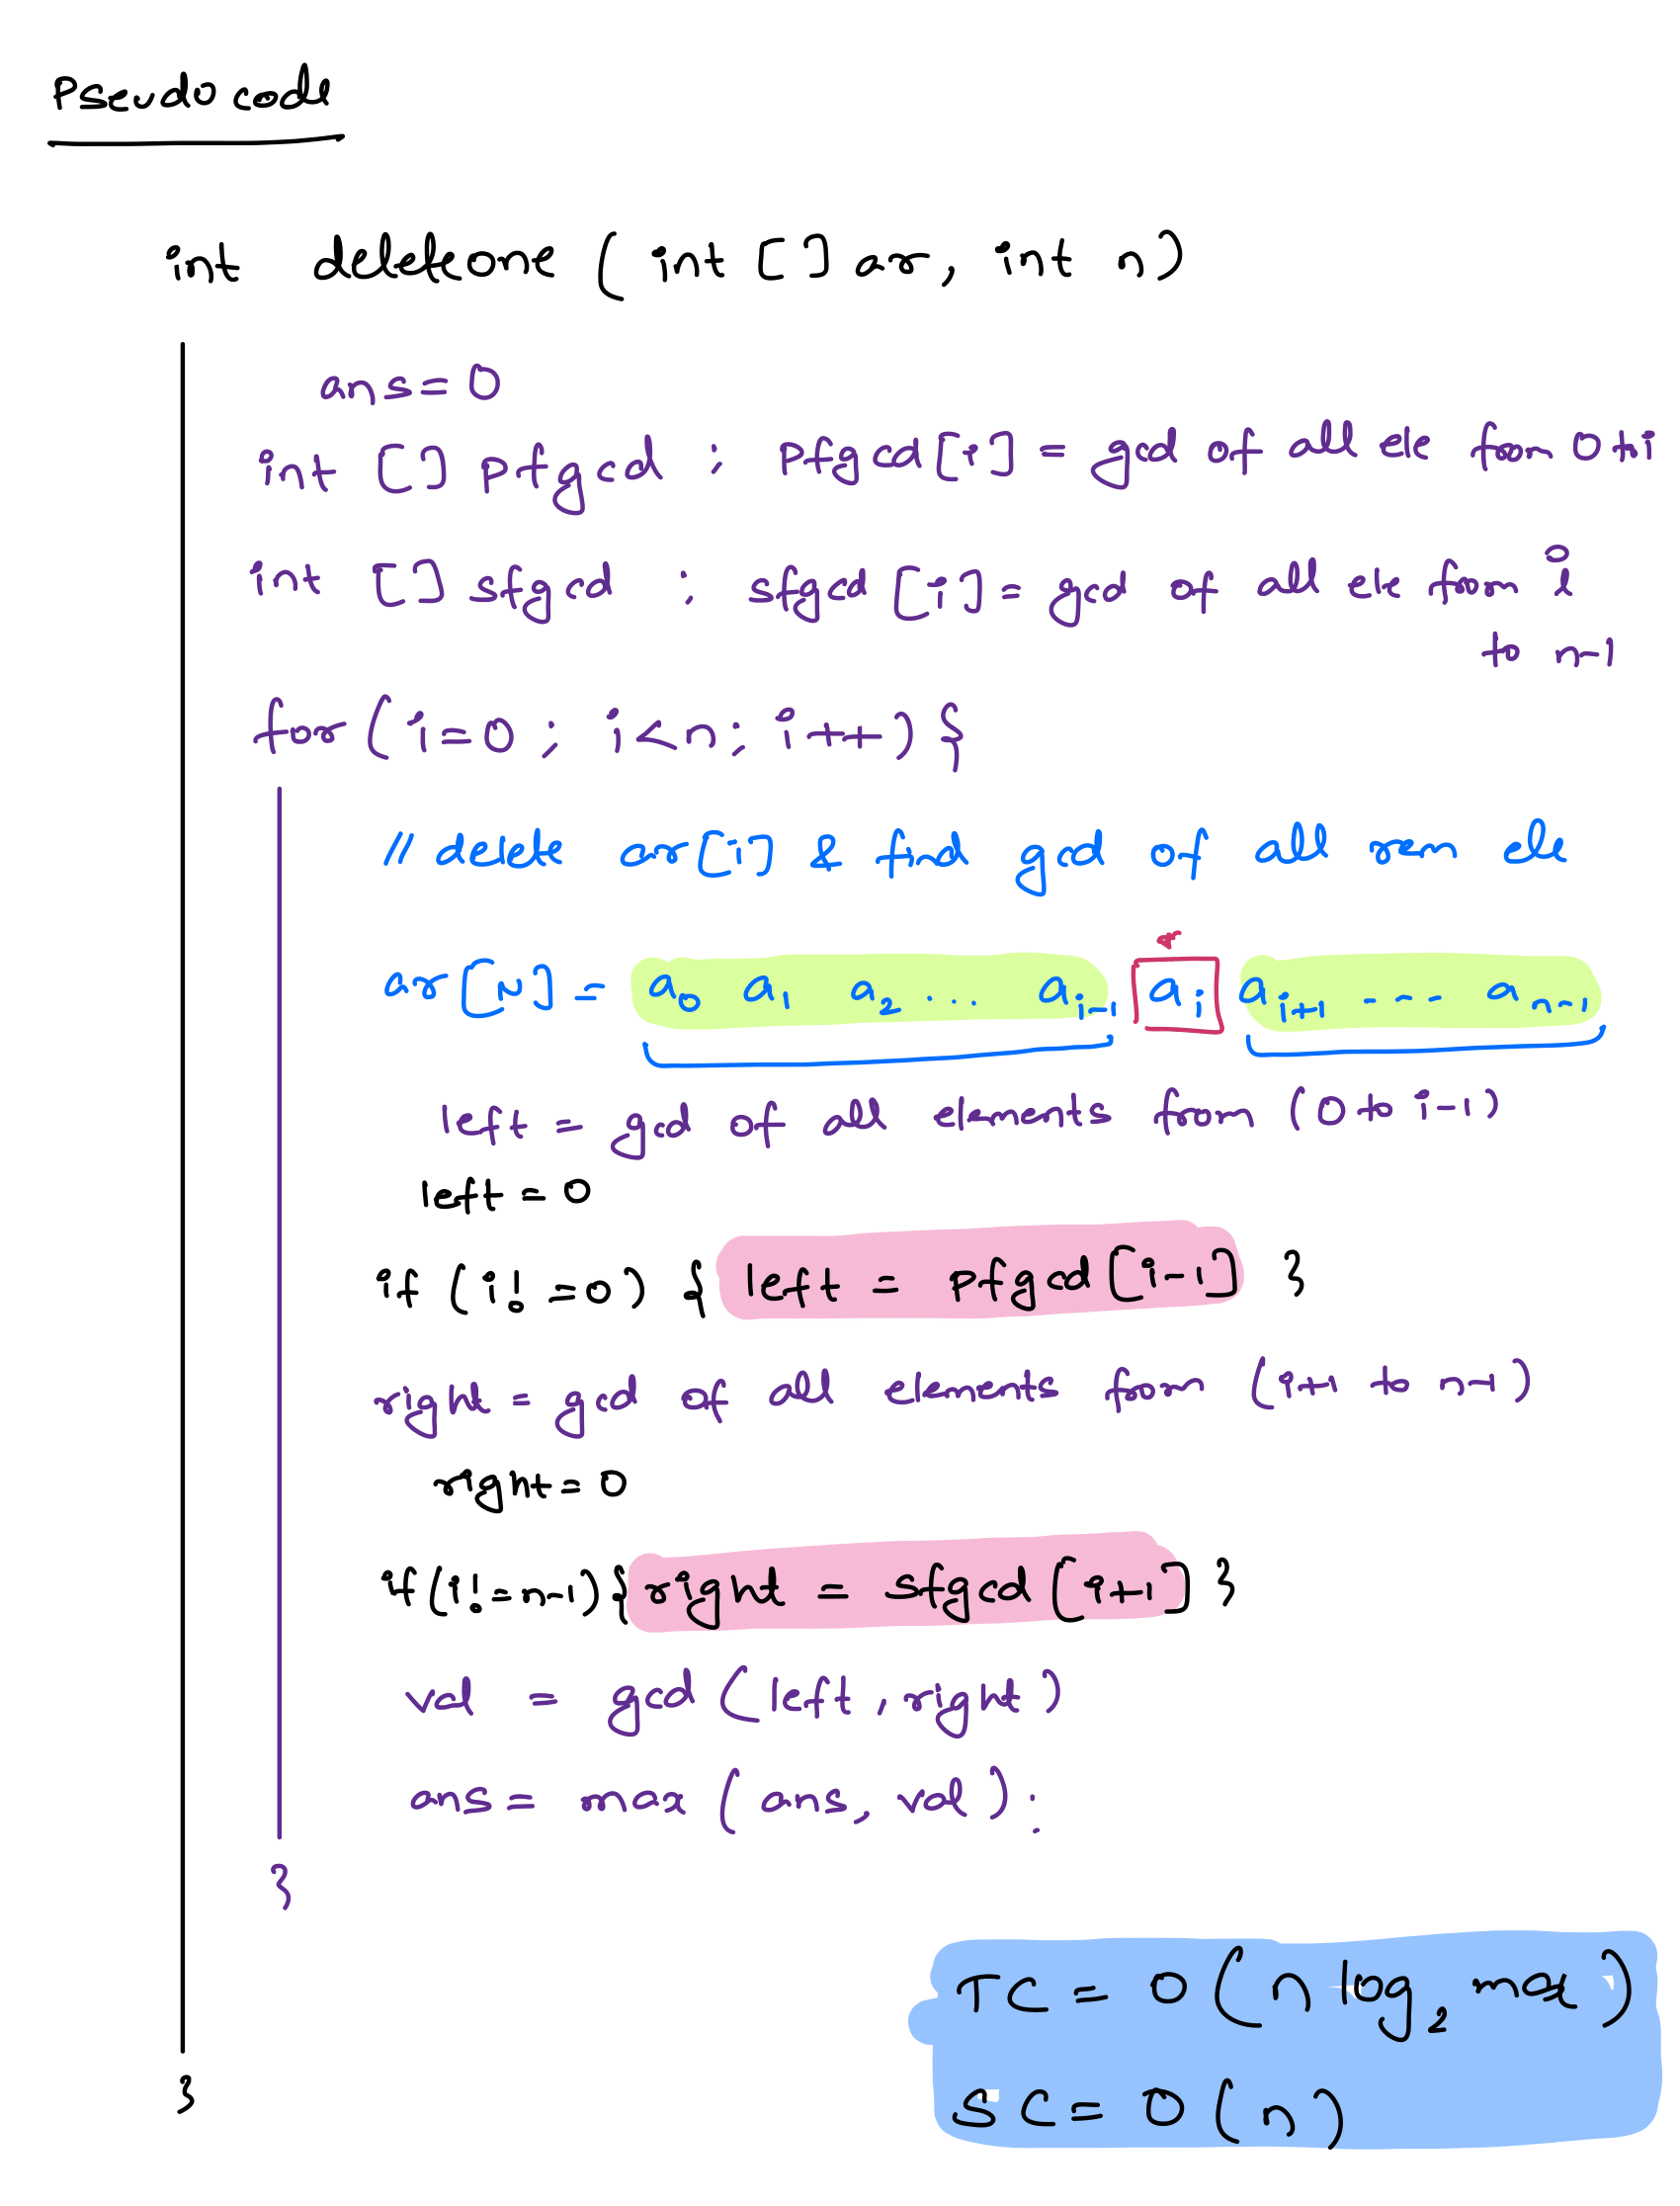 Pseudo code
int deleteone ( int [ ] ar, int n)
ans=0
int [ ] pfgcd ; pfgcd[i] = gcd of all ele from 0 to i
int [ ] sfgcd ; sfgcd [i] = gcd of all ele from i
to n-1
for ( i=0 ; i<n; i++) {
// delete ar[i] & find gcd of all rem ele
ar[N] = a0 a1 a2 ... ai-1 ai ai+1 ---- an-1
left = gcd of all elements from (0 to i-1)
left = 0
if ( i! =0) { left = pfgcd[i-1] }
right = gcd of all elements from (i+1 to n-1)
right = 0
if(i!=n-1){ right = sfgcd [i+1] }
val = gcd ( left, right )
ans = max ( ans, val );
}
TC = O ( n log2 max )
}
SC = O ( n )